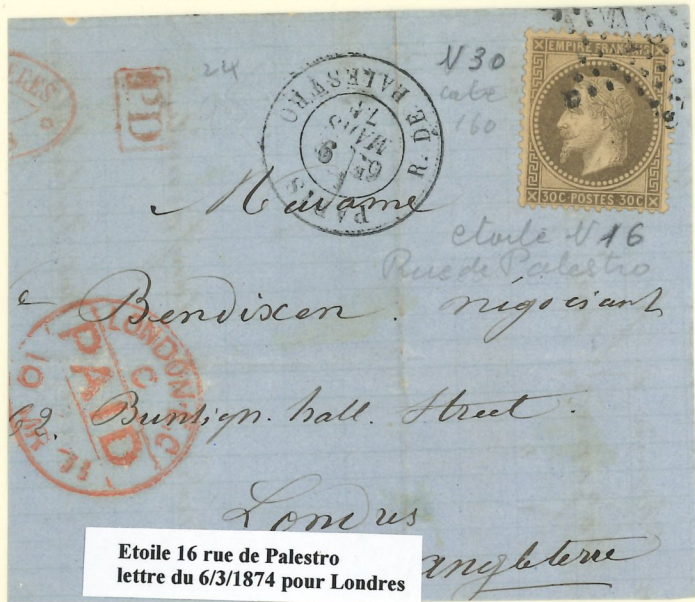 PD
24
PARIS R. DE PALESTRO
6E
9
MARS
N 30
cote
160
EMPIRE FRANÇAIS
30C POSTES 30C
Madame
etoile N 16
Rue de Palestro
Bendixen. négociant
LONDON. E.C
C
PAID
62. Hall. Street.
Londres
angleterre
Etoile 16 rue de Palestro
lettre du 6/3/1874 pour Londres